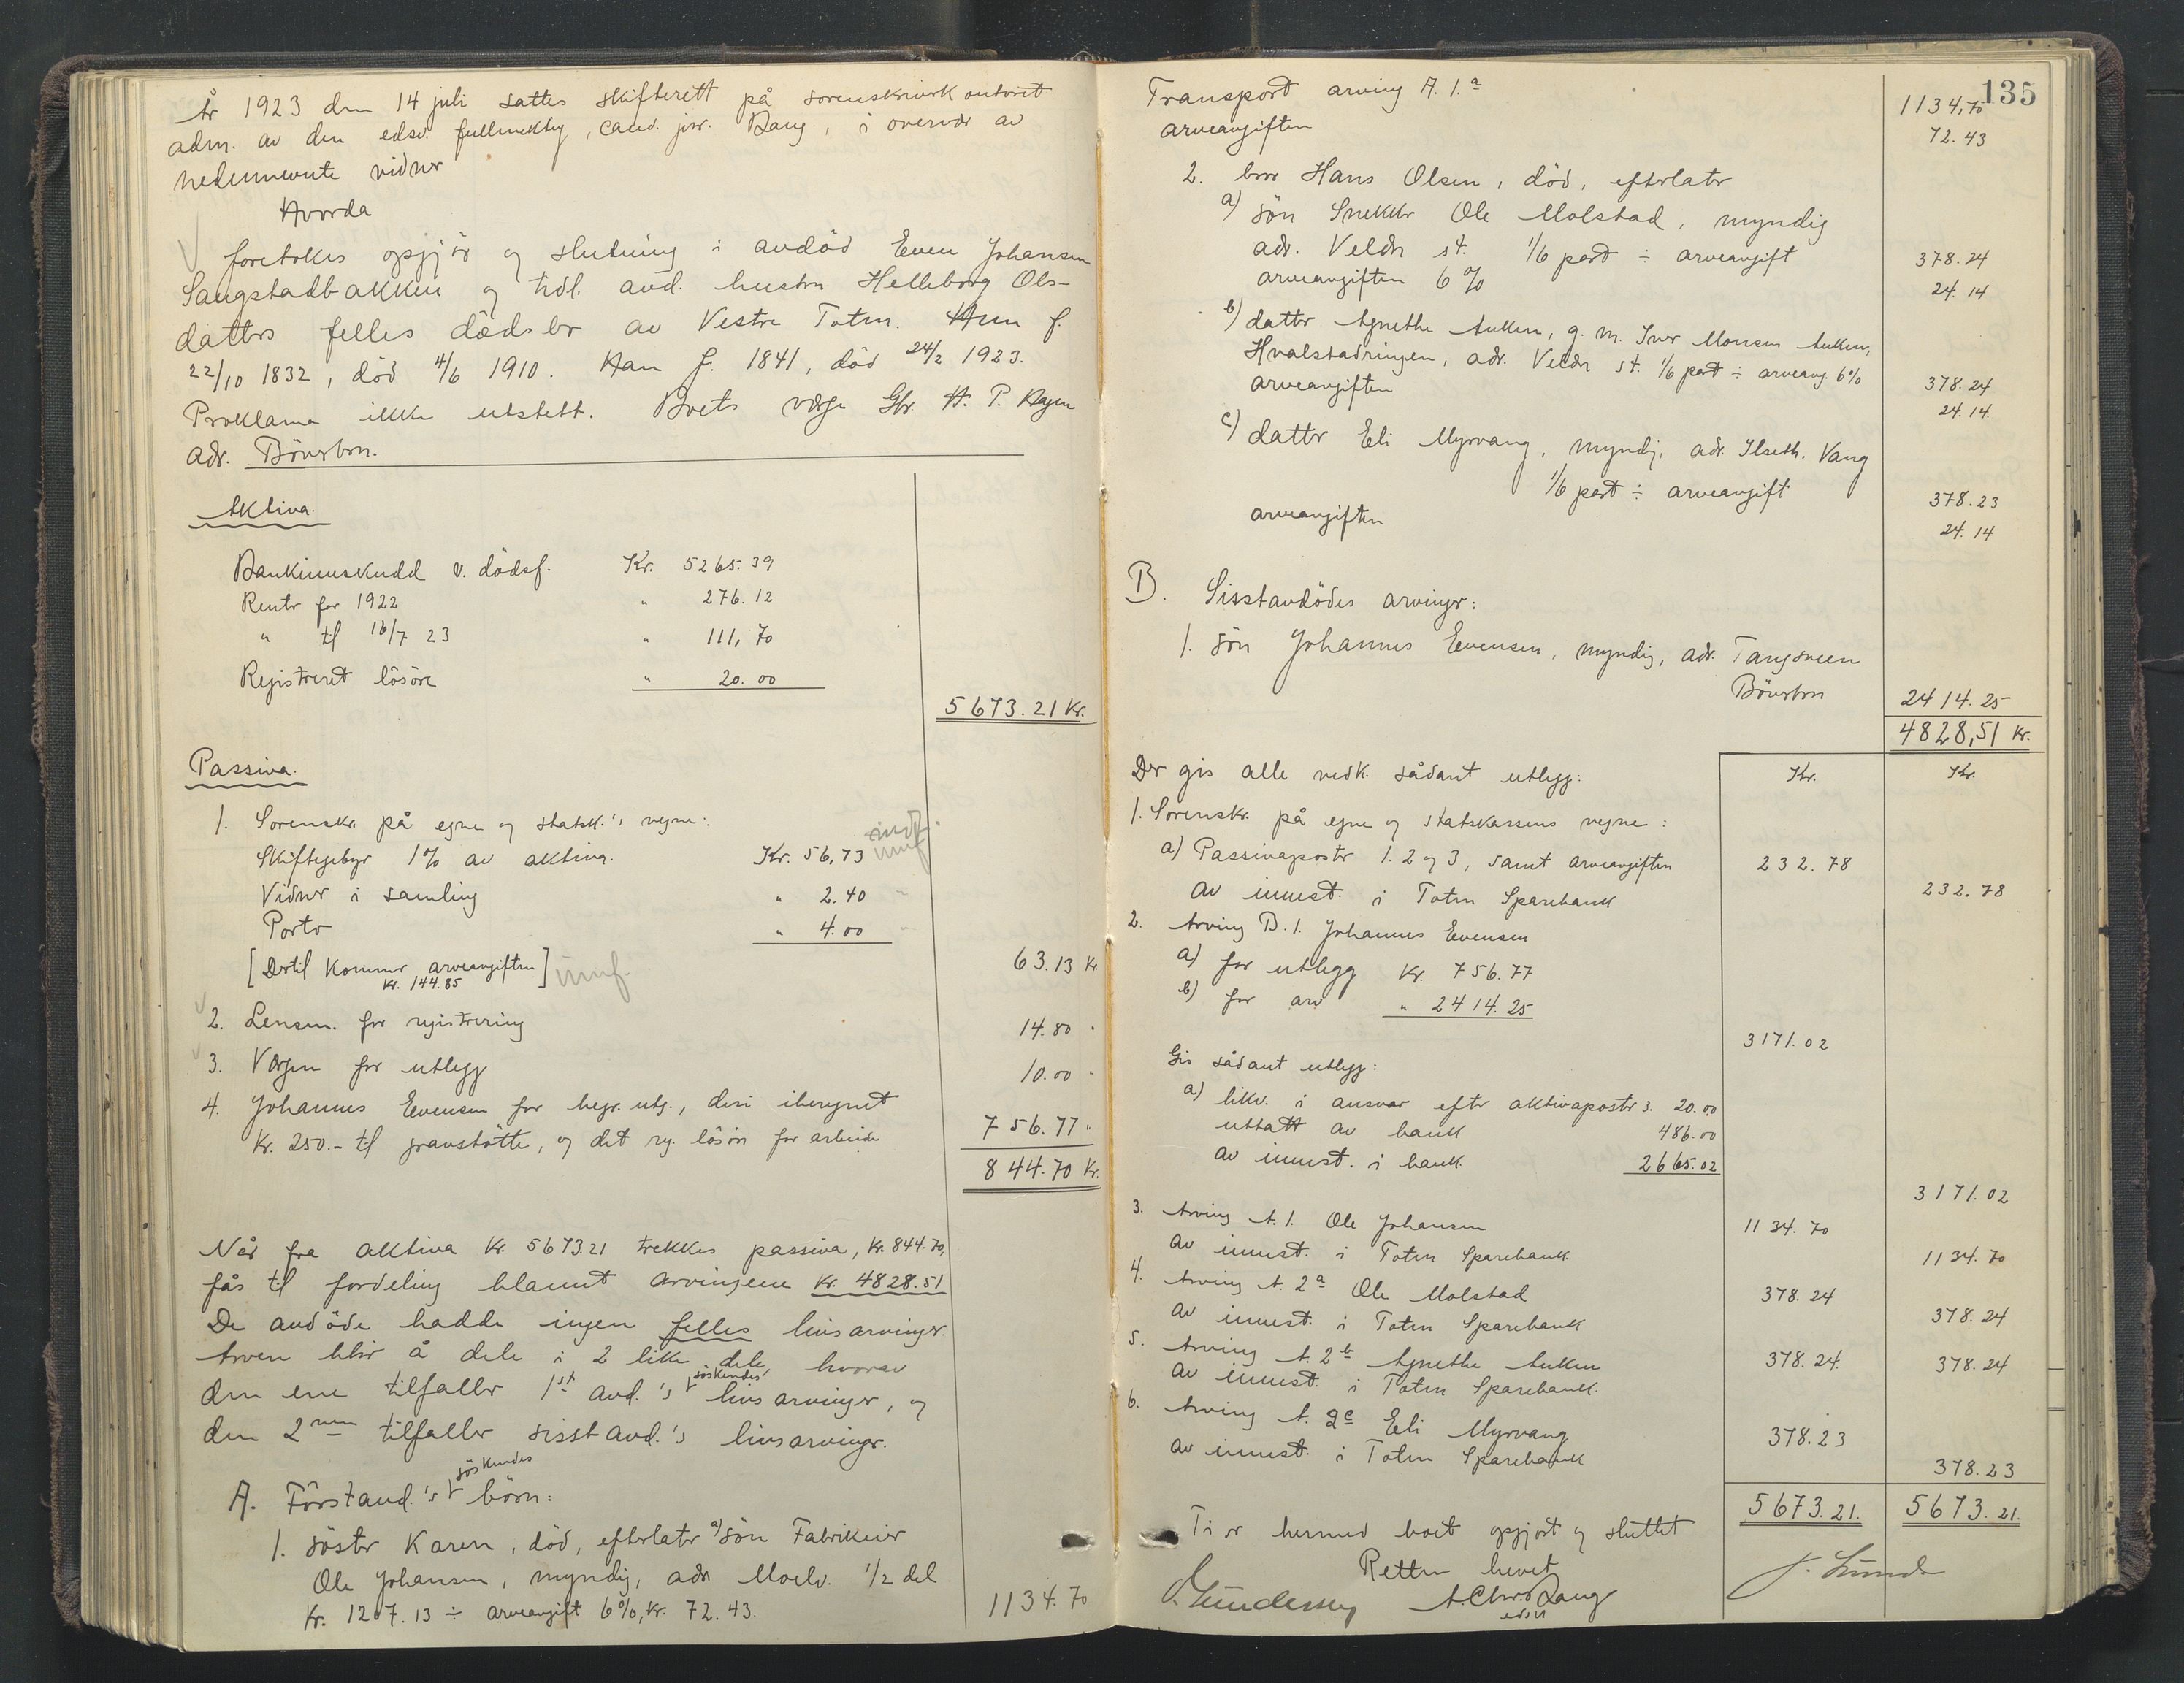 År 1923 den 14 juli sattes skifterett på sorenskriverkontoret
adm. av den edsv. fullmektig, cand. jur. Bang, i overvær av
nedennevnte vidner
Hvorda
foretokes opgjör og slutning i avdöd Even Johansen
Sangstadbakken og tidl. avd. hustru Helleborg Ols-
datters felles dödsbo av Vestre Toten. Hun f.
22/10 1832, död 4/6 1910. Han f. 1841, död 24/2 1923.
Proklama ikke utstett. Boets verge Gbr. H. P. Hagen
adr. Böverbru.
Aktiva.
Bankinnskudd v. dödsf. Kr. 5265.39
Renter for 1922 " 276.12
" til 16/7 23 " 111,70
Registreret lösöre " 20.00
5673.21 Kr.
Passiva.
1. Sorenskr. på egne og statsk.'s vegne:
Skiftegebyr 1% av aktiva. Kr. 56,73 innf.
Vidner i samling " 2.40 "
Porto " 4.00 "
63.13 Kr.
[Dertil kommer arveavgiften] innf.
Kr. 144.85
2. Lensm. for registrering 14.80 "
3. Vergen for utlegg 10.00 "
4. Johannes Evensen for begr. utg., deri iberegnet
Kr. 250.- til gravstötte, og det rg. lösöre for arbeide 756.77 "
844.70 Kr.
Når fra aktiva Kr. 5673.21 trekkes passiva, Kr. 844.70,
fås til fordeling blannt arvingene Kr. 4828.51
De avdöde hadde ingen felles livsarvinger.
Arven blir å dele i 2 like dele, hvorav
den ene tilfaller 1st avd.'s söskendes livsarvinger, og
den 2nen tilfaller sisstavd.'s livsarvinger.
A. Förstavd.'s söskendes börn:
1. söster Karen, död, efterlater a) sön Fabrikeier
Ole Johansen, myndig, adr. Moelv. 1/2 del
Kr. 1207.13 ÷ arveavgift 6%, Kr. 72.43. 1134.70
135
Transport arving A. 1.a 1134,70
arveavgiften 72.43
2. bror Hans Olsen, död, efterlater
a) sön Snekker Ole Molstad, myndig
adr. Veldre st. 1/6 part ÷ arveavgift 378.24
arveavgiften 6% 24.14
b) datter Agnethe Auken, g. m. Iver Monsen Auken,
Hvalstadringen, adr. Veldre st. 1/6 part ÷ arveavg. 6% 378.24
arveavgiften 24.14
c) datter Eli Myrvang, myndig, adr. Ilseth. Vang
1/6 part ÷ arveavgift 378.23
arveavgiften 24.14
B. Sisstavdödes arvinger:
1. sön Johannes Evensen, myndig, adr. Tangsveen
Böverbru 2414.25
4828,51 Kr.
Der gis alle vedk. sådant utlegg: Kr. Kr.
1. Sorenskr. på egne og statskassens vegne:
a) Passivaposter 1. 2 og 3, samt arveavgiften 232.78
av innest. i Toten Sparebank 232.78
2. Arving B. 1. Johannes Evensen
a) for utlegg Kr. 756.77
b) for arv " 2414.25
3171.02
Gis sådant utlegg:
a) likv. i ansvar efter aktivaposter 3. 20.00
uttatt av bank 486.00
av innest. i bank. 2665.02
3171.02
3. Arving A. 1. Ole Johansen 1134.70
av innest. i Toten Sparebank 1134.70
4. Arving A. 2a Ole Molstad 378.24
av innest. i Toten Sparebank 378.24
5. Arving A. 2b Agnethe Auken 378.24.
av innest. i Toten Sparebank. 378.24
6. Arving A. 2c Eli Myrvang 378.23
av innest. i Toten Sparebank 378.23
5673.21. 5673.21.
Ti er hermed boet opgjort og sluttet
Retten hevet
A. Chr. Bang
edsv.